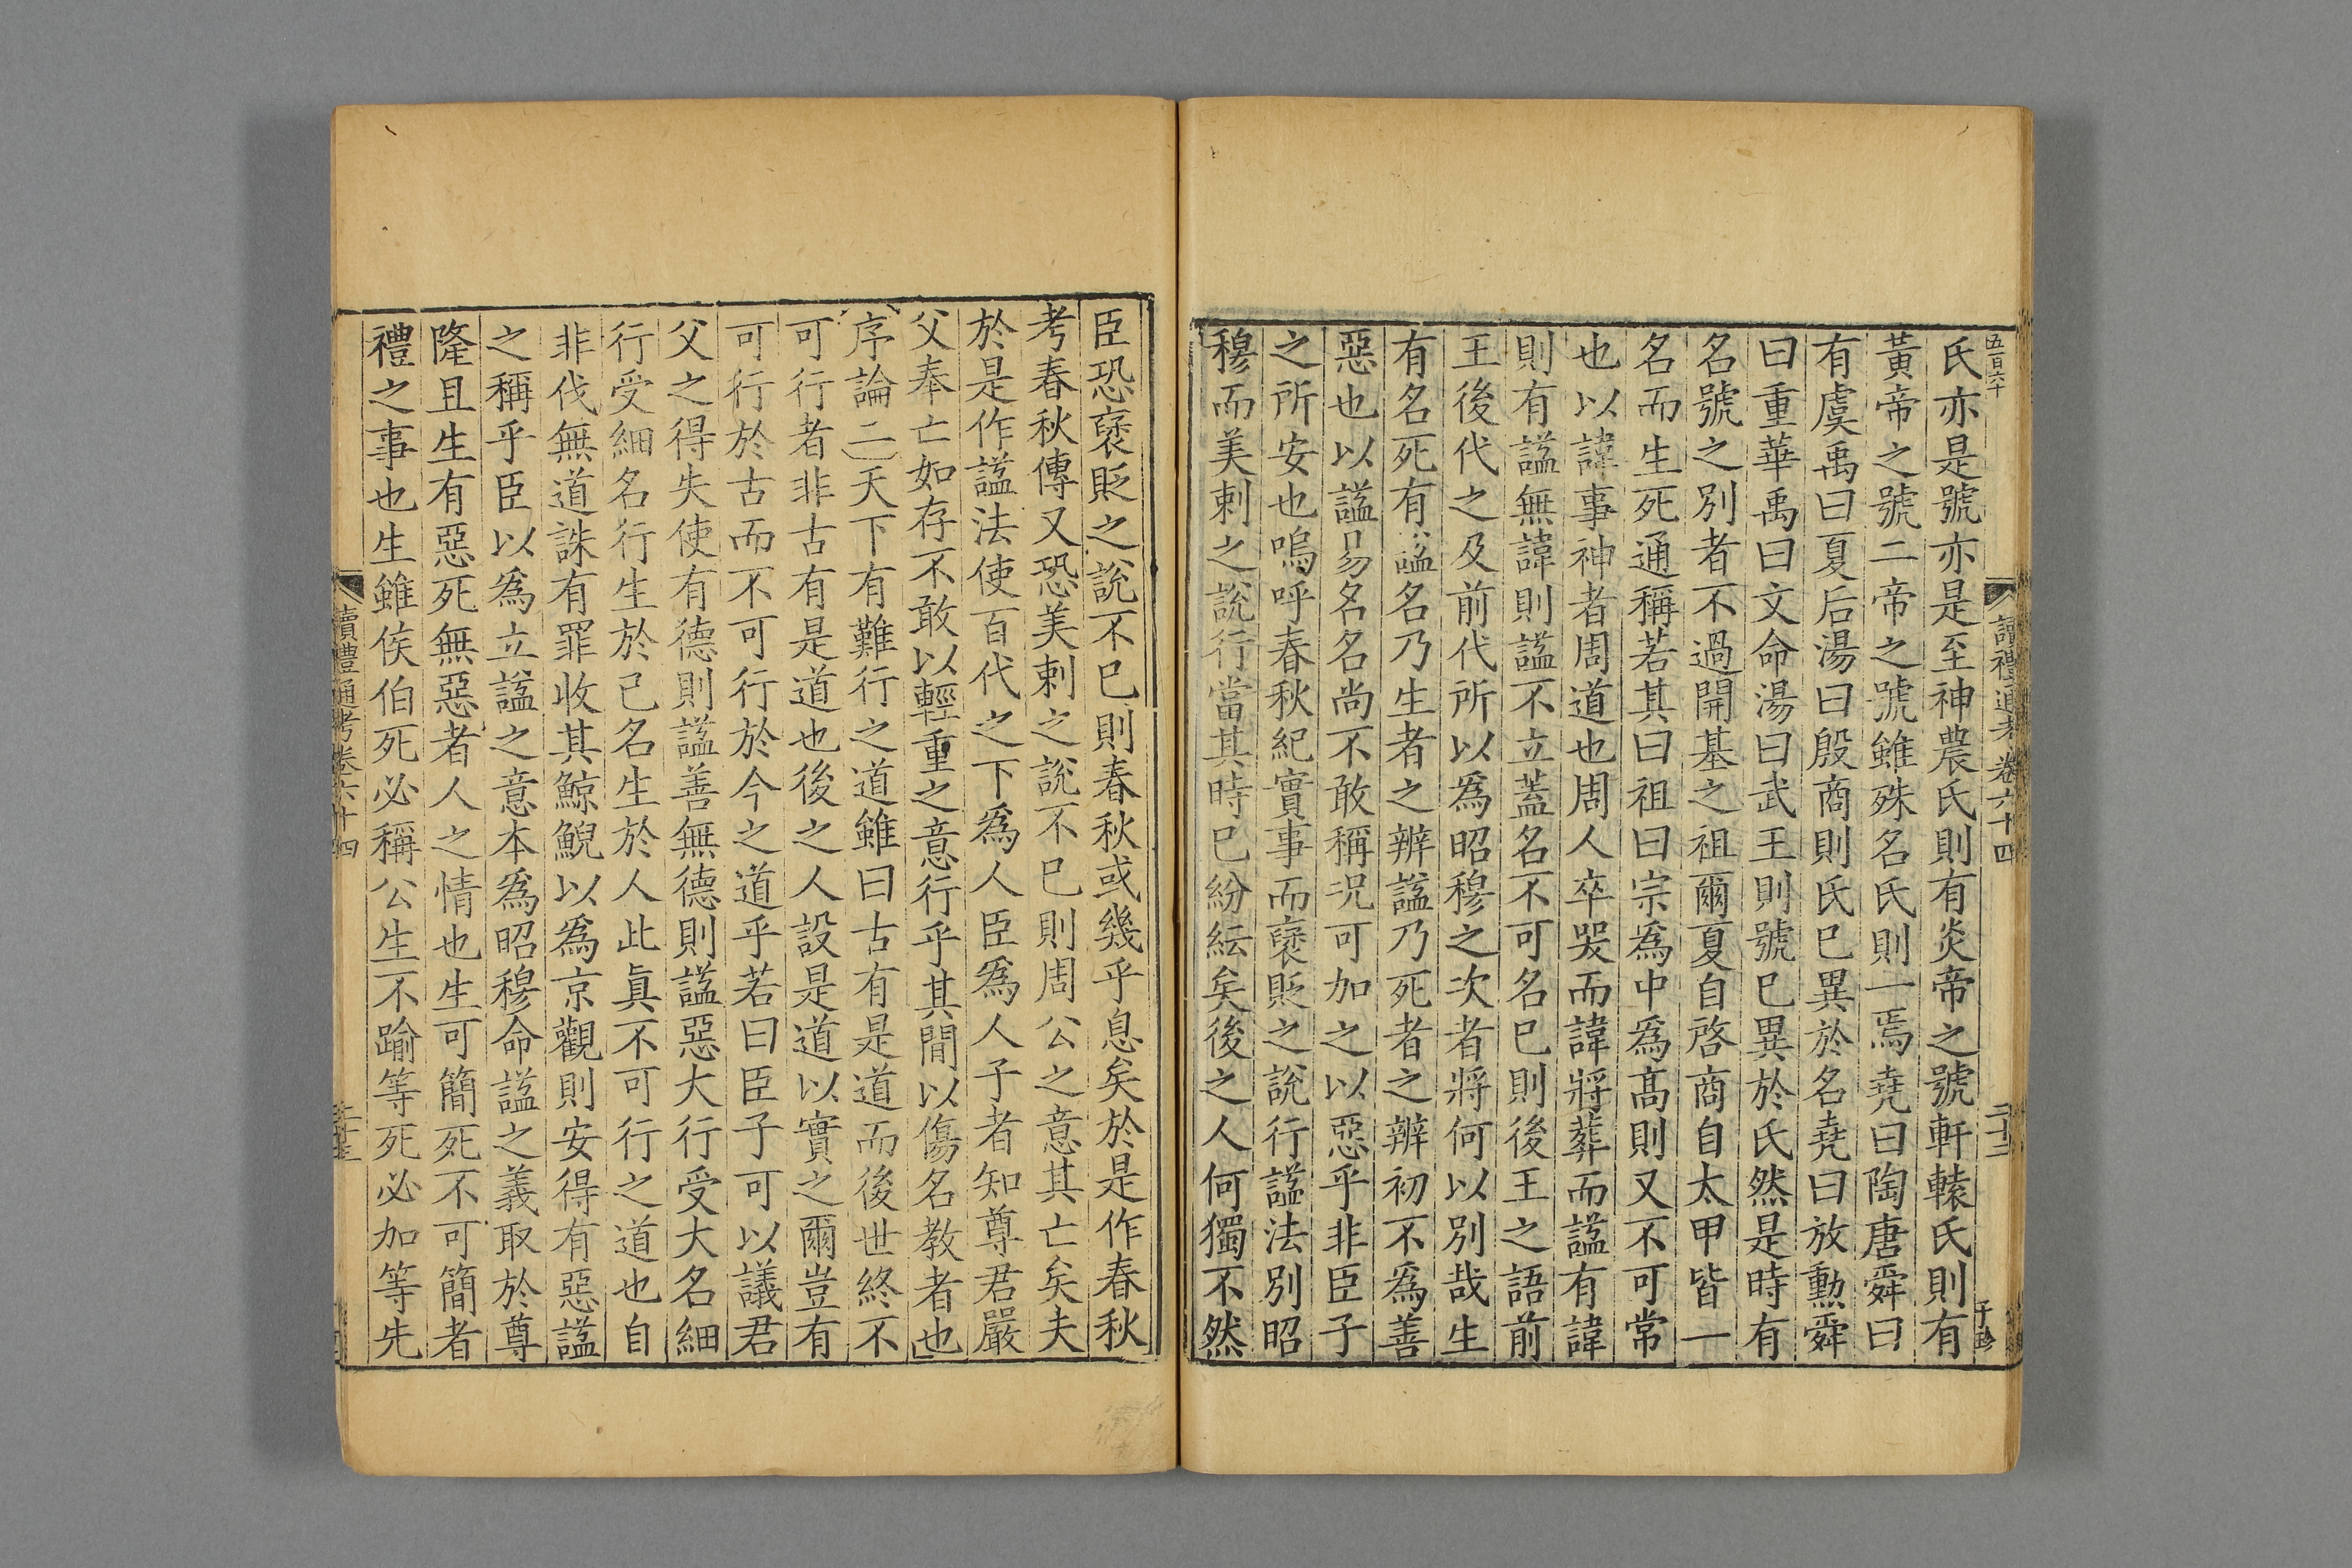 五百六十
讀禮通考卷六十四
二十三
子珍
氏亦是號亦是至神農氏則有炎帝之號軒轅氏則有
黃帝之號二帝之號雖殊名氏則一焉堯曰陶唐舜曰
有虞禹曰夏后湯曰殷商則氏巳異於名堯曰放勳舜
曰重華禹曰文命湯曰武王則號巳異於氏然是時有
名號之別者不過開基之祖爾夏自啓商自太甲皆一
名而生死通稱若其曰祖曰宗爲中爲高則又不可常
也以諱事神者周道也周人卒哭而諱將葬而諡有諱
則有諡無諱則諡不立蓋名不可名巳則後王之語前
王後代之及前代所以爲昭穆之次者將何以別哉生
有名死有諡名乃生者之辨諡乃死者之辨初不爲善
惡也以諡易名名尚不敢稱况可加之以惡乎非臣子
之所安也嗚呼春秋紀實事而褒貶之說行諡法別昭
穆而美刺之說行當其時巳紛紜矣後之人何獨不然
臣恐褒貶之說不巳則春秋或幾乎息矣於是作春秋
考春秋傳又恐美刺之說不巳則周公之意其亡矣夫
於是作諡法使百代之下爲人臣爲人子者知尊君嚴
父奉亡如存不敢以輕重之意行乎其間以傷名教者也
序論二天下有難行之道雖曰古有是道而後世終不
可行者非古有是道也後之人設是道以實之爾豈有
可行於古而不可行於今之道乎若曰臣子可以議君
父之得失使有德則諡善無德則諡惡大行受大名細
行受細名行生於己名生於人此眞不可行之道也自
非伐無道誅有罪收其鯨鯢以爲京觀則安得有惡諡
之稱乎臣以爲立諡之意本爲昭穆命諡之義取於尊
隆且生有惡死無惡者人之情也生可簡死不可簡者
禮之事也生雖侯伯死必稱公生不踰等死必加等先
讀禮通考卷六十四